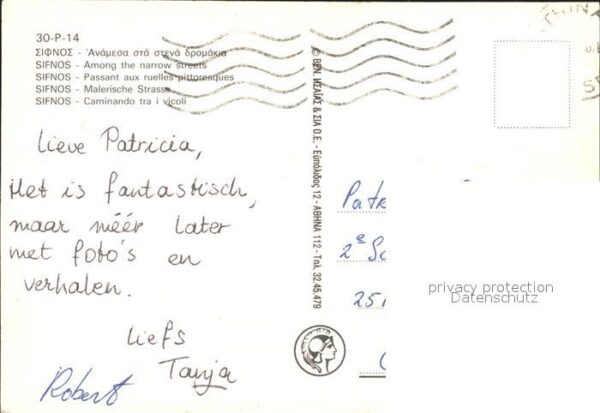 30-P-14
ΣΙΦΝΟΣ - Ἀνάμεσα στά στενά δρομάκια
SIFNOS - Among the narrow streets
SIFNOS - Passant aux ruelles pittoresques
SIFNOS - Malerische Strasse
SIFNOS - Caminando tra i vicoli
Lieve Patricia,
Het is fantastisch,
maar méér later
met foto's en
verhalen.
Liefs
Tanja
Robert
© ΒΕΝ. ΗΣΑΪΑΣ & ΣΙΑ Ο.Ε. - Εὐπόλιδος 12 - ΑΘΗΝΑ 112 - Τηλ. 32.45.479
Patr
2e Sc
25
privacy protection
Datenschutz